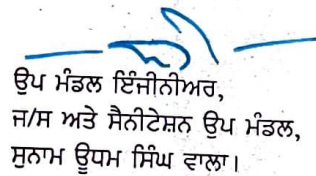 ਉਪ ਮੰਡਲ ਇੰਜੀਨੀਅਰ,
ਜ/ਸ ਅਤੇ ਸੈਨੀਟੇਸ਼ਨ ਉਪ ਮੰਡਲ,
ਸੁਨਾਮ ਊਧਮ ਸਿੰਘ ਵਾਲਾ।